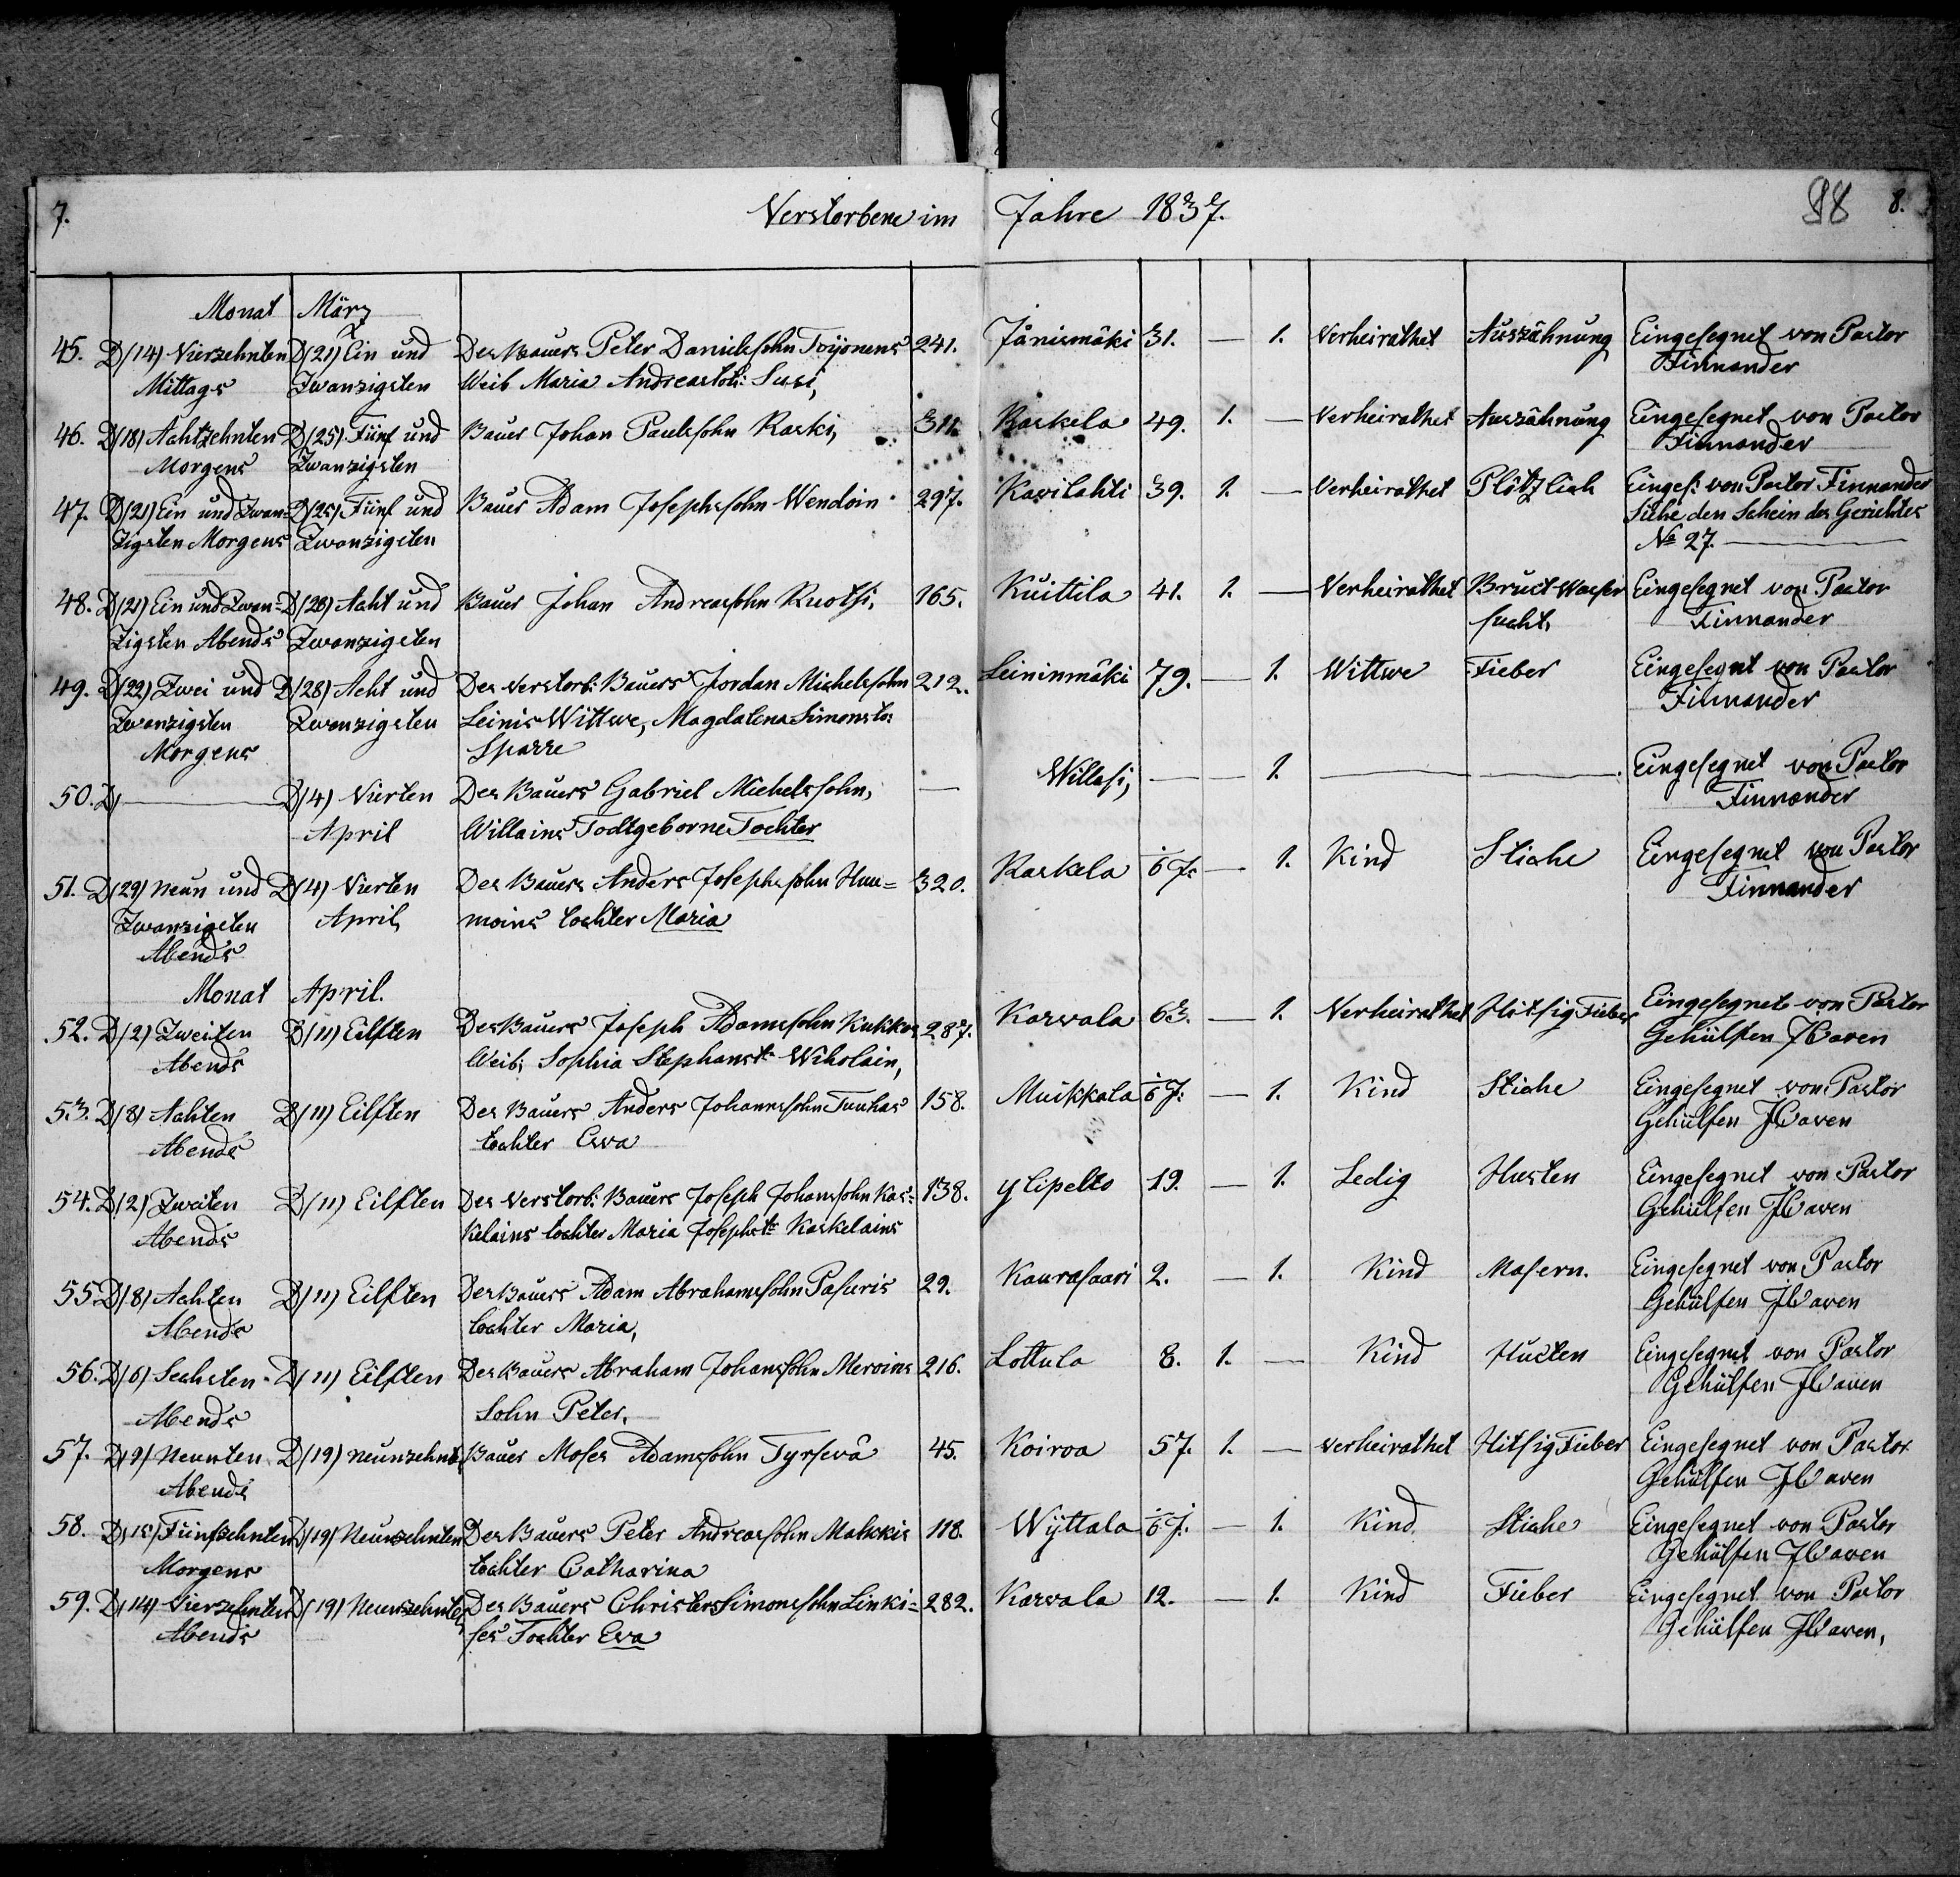 7.
Verstorbene im Jahre 1837.
88 8.
Monat März
45. D/14) Vierzehnten D/21) Ein und Des Bauers Peter Danielssohn Toijonens 241. Jänismäki 31. — 1. Verheirathet Auszähnung Eingesegnet von Pastor
Mittags Zwanzigsten Weib Maria Andreastoh: Susi, Finnander
46. D/18) Achtzehnten D/25) Fünf und Bauer Johan Paulssohn Raski, 311. Raskela 49. 1. — Verheirathet Auszähnung Eingesegnet von Pastor
Morgens Zwanzigsten Finnander
47. D/21) Ein und Zwan= D/25) Fünf und Bauer Adam Josephssohn Wendoin 297. Kavilahti 39. 1. — Verheirathet Plötzlich Einges: von Pastor Finnander
zigsten Morgens Zwanzigsten Siehe den Schein des Gerichtes
№ 27.
48. D/21) Ein und Zwan= D/28) Acht und Bauer Johan Andreassohn Ruotsi, 165. Kuittila 41. 1. — Verheirathet Brust-Wasser Eingesegnet von Pastor
zigsten Abends Zwanzigsten sucht, Finnander
49. D/22) Zwei und D/28) Acht und Des verstorb: Bauers Jordan Michelssohn 212. Leininmäki 79. — 1. Wittwe Fieber Eingesegnt von Pastor
Zwanzigsten Zwanzigsten Leinis Wittwe, Magdalena Simonsto: Finnander
Morgens Sparre
50. D/ — D/4) Vierten Des Bauers Gabriel Michelssohn, — Willasi, — — 1. — — Eingesegnet von Pastor
April Willains Todtgeborne Tochter Finnander
51. D/29) Neun und D/4) Vierten Des Bauers Anders Josephssohn Huu= 320. Raskela 6 7: — 1. Kind Stiche Eingesegnet von Pastor
Zwanzigsten April, moins tochter Maria Finnander
Abends
Monat April.
52. D/2) Zweiten D/11) Eilften Des Bauers Joseph Adamssohn Kukkos 287. Karvala 63. — 1. Verheirathet Hitsig Fieber Eingesegnet von Pastor
Abends Weib: Sophia Stephanst: Wiholain, Gehülfen Haven
53. D/8) Achten D/11) Eilften Des Bauers Anders Johanssohn Tuukas 158. Muikkala 6 7: — 1. Kind Stiche Eingesegnet von Pastor
Abends tochter Ewa Gehülfen Haven
54. D/2) Zweiten D/11) Eilften Des Verstorb: Bauers Joseph Johanssohn Kas= 138. Ylipelto 19. — 1. Ledig Husten Eingesegnet von Pastor
Abends kelains tochter Maria Josephst: Kaskelains Gehülfen Haven
55. D/8) Achten D/11) Eilften Des Bauers Adam Abrahamssohn Pasuris 29. Kaurasaari 2. — 1. Kind Masern. Eingesegnet von Pastor
Abends tochter Maria, Gehülfen Haven
56. D/6) Sechsten D/11) Eilften Des Bauers Abraham Johanssohn Meroins 216. Lottula 8. 1. — Kind Husten Eingesegnet von Pastor
Abends Sohn Peter, Gehülfen Haven
57. D/9) Neunten D/19) neunzehnt, Bauer Moses Adamssohn Tyrsewä 45. Koiroa 57. 1. — verheirathet Hitsig Fieber Eingesegnet von Pastor
Abends Gehülfen Haven
58. D/15) Fünfzehnten D/19) Neunzehnten Des Bauers Peter Andreassohn Makkis 118. Wÿttala 6 7: — 1. Kind Stiche Eingesegnet von Pastor
Morgens tochter Catharina Gehülfen Haven
59. D/14) Vierzehnten D/19) Neunzehnten Des Bauers Christers Simonssohn Linki= 282. Karvala 12. — 1. Kind Fieber Eingesegnet von Pastor
Abends ses Tochter Eva Gehülfen Haven,